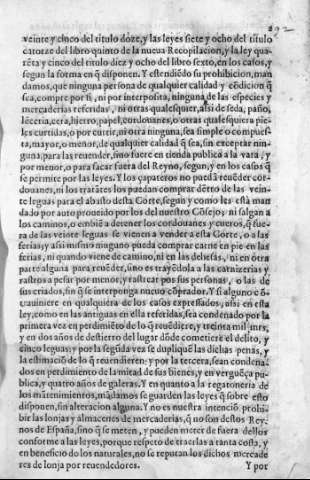 veinte y cinco del titulo doze, y las leyes siete y ocho del titulo
catorze del libro quinto de la nueva Recopilacion, y la ley qua-
rẽta y cinco del titulo diez y ocho del libro sexto, en los casos, y
segun la forma en q̃ disponen. Y estendiẽdo su prohibicion, man
damos, que ninguna persona de qualquier calidad y cõdicion q̃
sea, compre por si, ni por interposita, ninguna de las especies y
mercaderias referidas, ni otras qualesquier, assi de seda, paños,
lẽceria, cera, hierro, papel, cordouanes, o otras qualesquiera pie-
les curtidos, o por curtir, ni otra ninguna, sea simple o compues-
ta, mayor, o menor, de qualquier calidad q̃ sea, sin exceptar nin-
guna, para las reuender, sino fuere en tienda publica a la vara, y
por menor, o para sacar fuera del Reyno, segun, y en los casos q̃
se permite por las leyes. Y los çapateros no puedã reuẽder cor-
douanes, ni los tratãtes los puedan comprar dẽtro de las vein-
te leguas para el abasto desta Corte, segun y como les està man
dado por auto proueido por los del nuestro Cõsejo, ni salgan a
los caminos, o embiẽ a detener los cordouanes y cueros, q̃ fue-
ra de las veinte leguas se vienen a vender a esta Corte, o a las
ferias, y assi mismo ninguno pueda comprar carne en pie en las
ferias, ni quando viene de camino, ni en las dehesas, ni en otra
parte alguna para reuẽder, sino es trayẽdola a las carnizerias y
rastros a pesar por menor, y rastrear por sus personas, o las de
sus criados, sin q̃ se interponga nueuo cõprador. Y si alguno cõ
trauiniere en qualquiera de los casos expressados, assi en esta
ley, como en las antiguas en ella referidas, sea condenado por la
primera vez en perdimiẽto de lo q̃ reuẽdiere, y treinta mil mrs,
y en dos años de destierro del lugar dõde cometiere el delito, y
cinco leguas: y por la segũda vez se dupliquẽ las dichas penas, y
la estimaciõ de lo q̃ reuendieren: y por la tercera, sean condena-
dos en perdimiento de la mitad de sus bienes, y en verguẽça pu-
blica, y quatro años de galeras. Y en quanto a la regatoneria de
los mãtenimientos, mãdamos se guarden las leyes q̃ sobre esto
disponen, sin alteracion alguna. Y no es nuestra intenciõ prohi-
bir las lonjas y almacenes de mercaderias, q̃ no son destos Rey-
nos de España, sino q̃ se meten, y pueden meter de fuera dellos
conforme a las leyes, porque respeto de traerlas a tanta costa, y
en beneficio de los naturales, no se reputan los dichos mercade
res de lonja por reuendedores. Y por